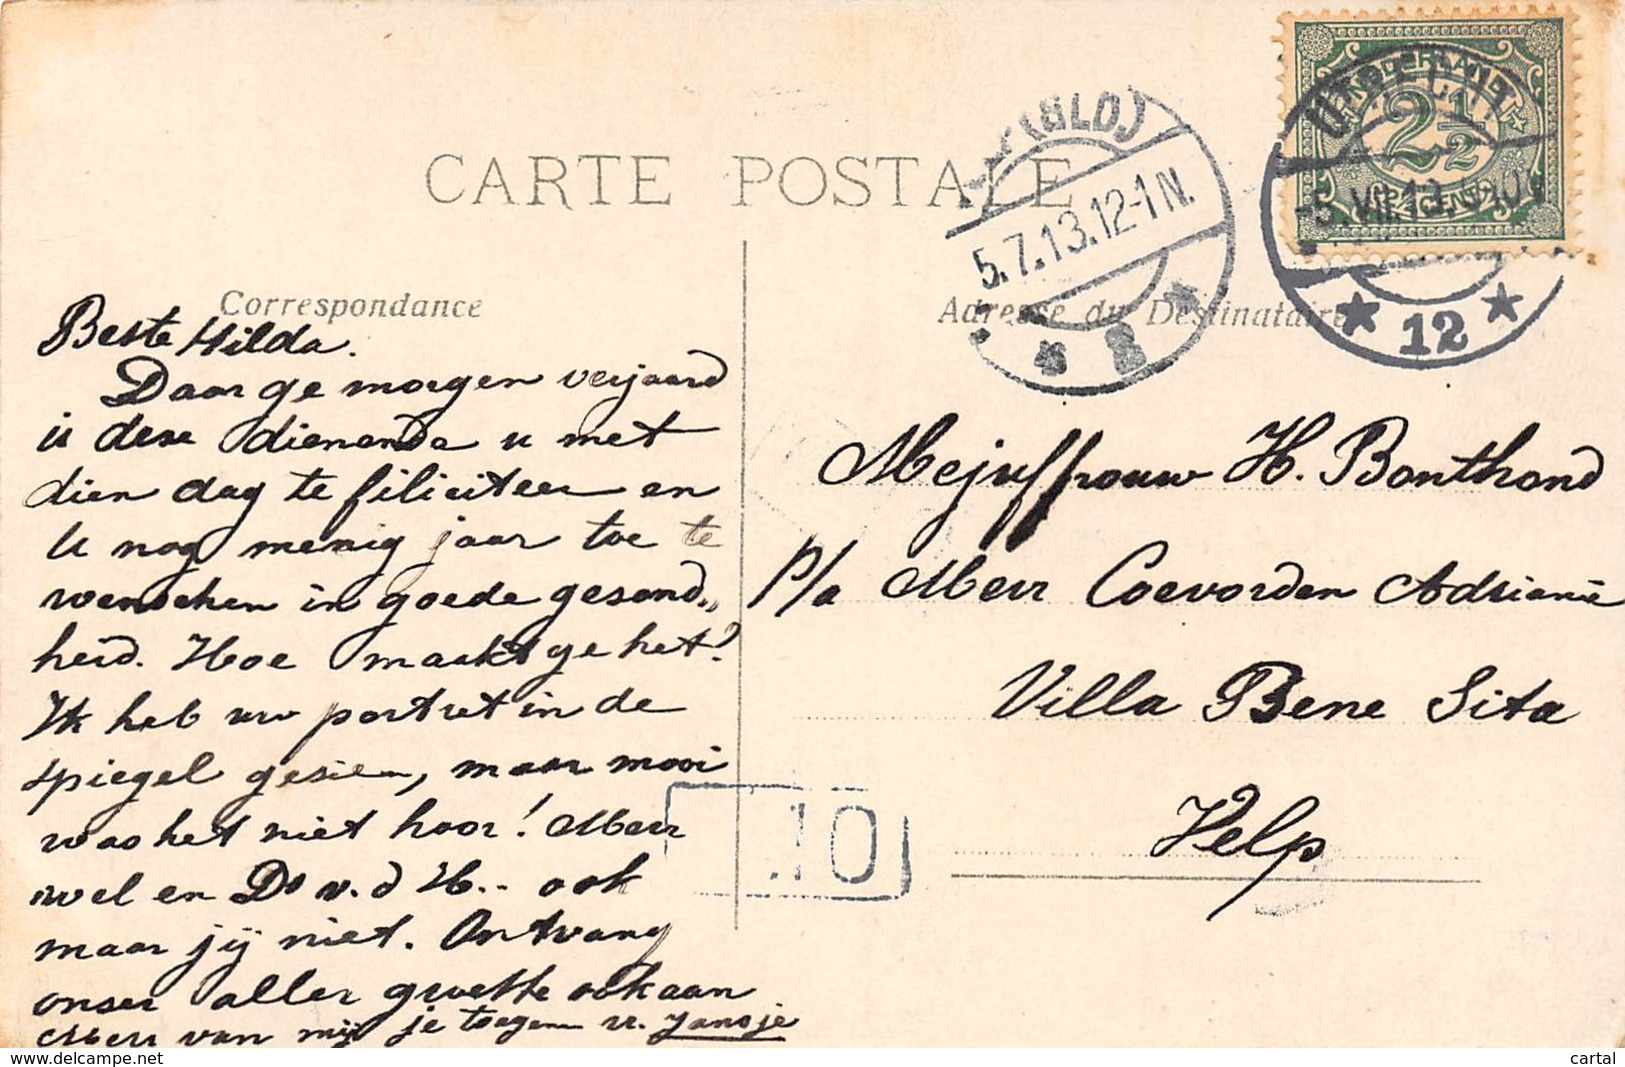 CARTE POSTALE
Correspondance
Adresse du Destinataire
NEDERLAND
2 1/2
CENT
UTRECHT
-5.VII.13.
12
(GLD)
5.7.13.12-1N.
8
Beste Hilda.
Daar ge morgen verjaard
is deze dienende u met
dien dag te filiciteer en
U nog menig jaar toe te
wenschen in goede gesond„
heid. Hoe maakt ge het?
Ik heb uw portret in de
spiegel gesien, maar mooi
was het niet hoor! Merr
wel en Ds v. d H.. ook
maar jij niet. Ontvang
onser aller groette ook aan
Merr van mij je toegen vr. Jansje
Mejuffrouw H. Bonthond
P/a Merr Coevorden Adrianie
Villa Bene Sita
Velp
10
www.delcampe.net
cartal